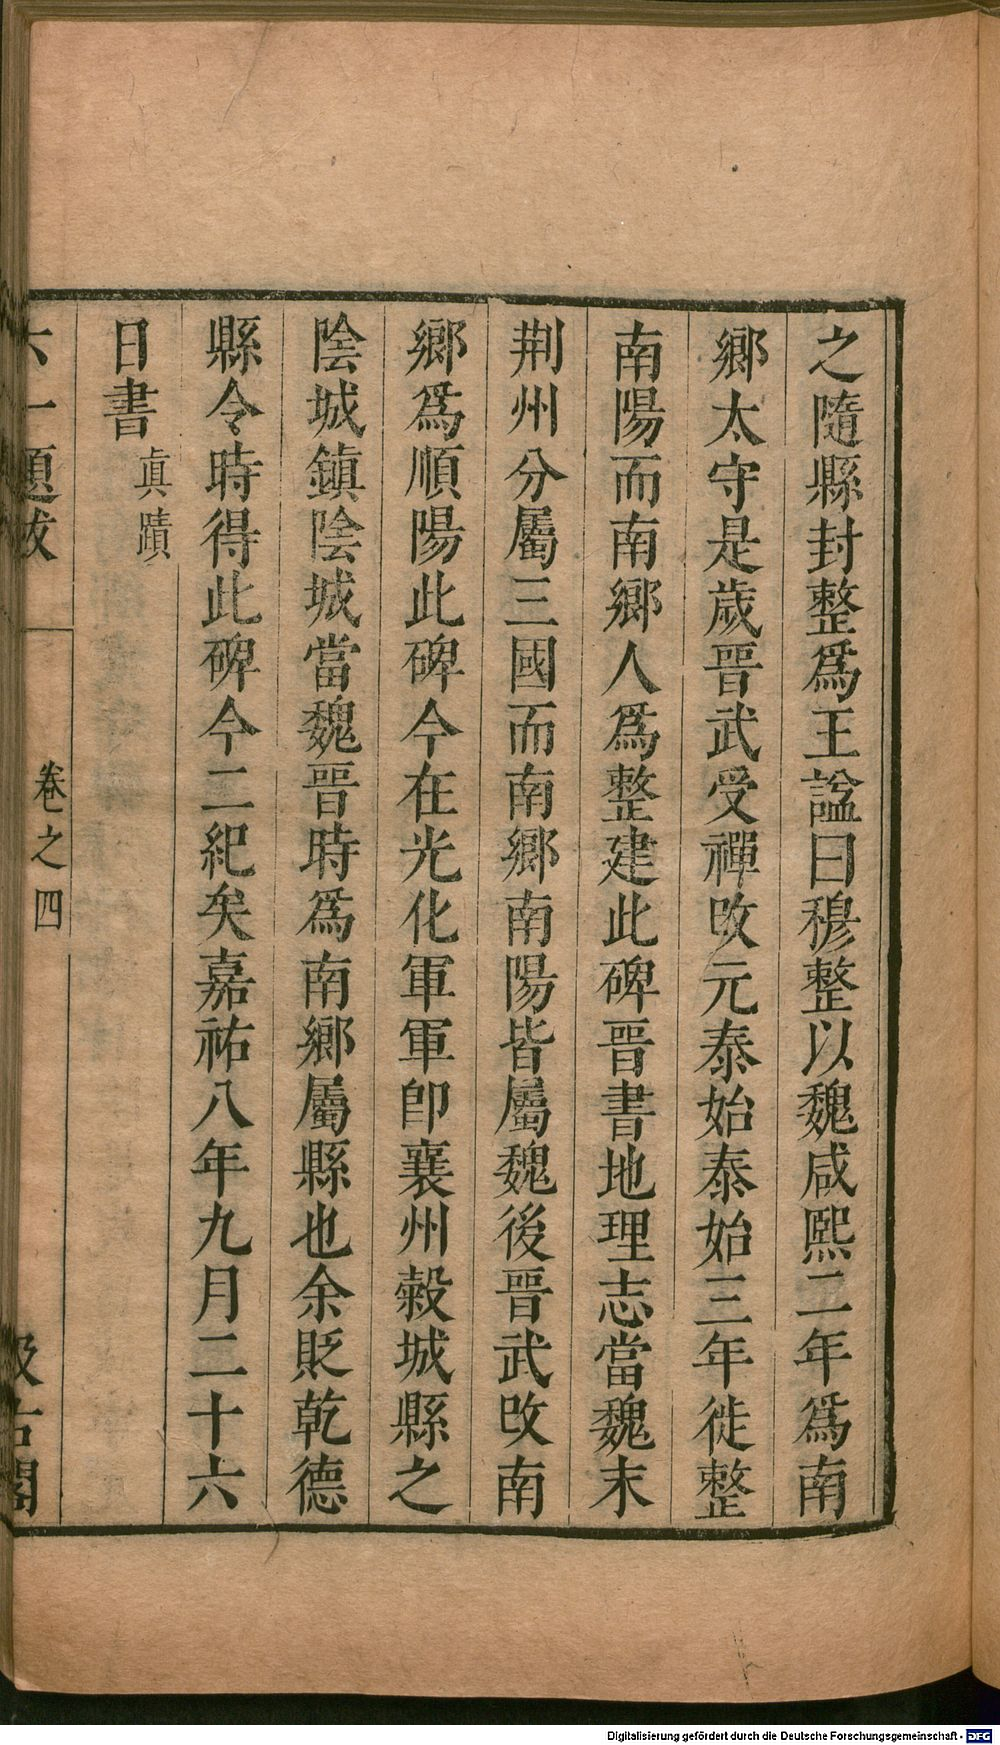 之隨縣封整爲王諡曰穆整以魏咸熙二年爲南
鄉太守是歲晉武受禪改元泰始泰始三年徙整
南陽而南鄉人爲整建此碑晉書地理志當魏末
荆州分屬三國而南鄉南陽皆屬魏後晉武改南
鄉爲順陽此碑今在光化軍軍即襄州榖城縣之
陰城鎮陰城當魏晉時爲南鄉屬縣也余貶乾德
縣令時得此碑今二紀矣嘉祐八年九月二十六
日書 真蹟
六一題跋 卷之四 汲古閣
Digitalisierung gefördert durch die Deutsche Forschungsgemeinschaft - DFG